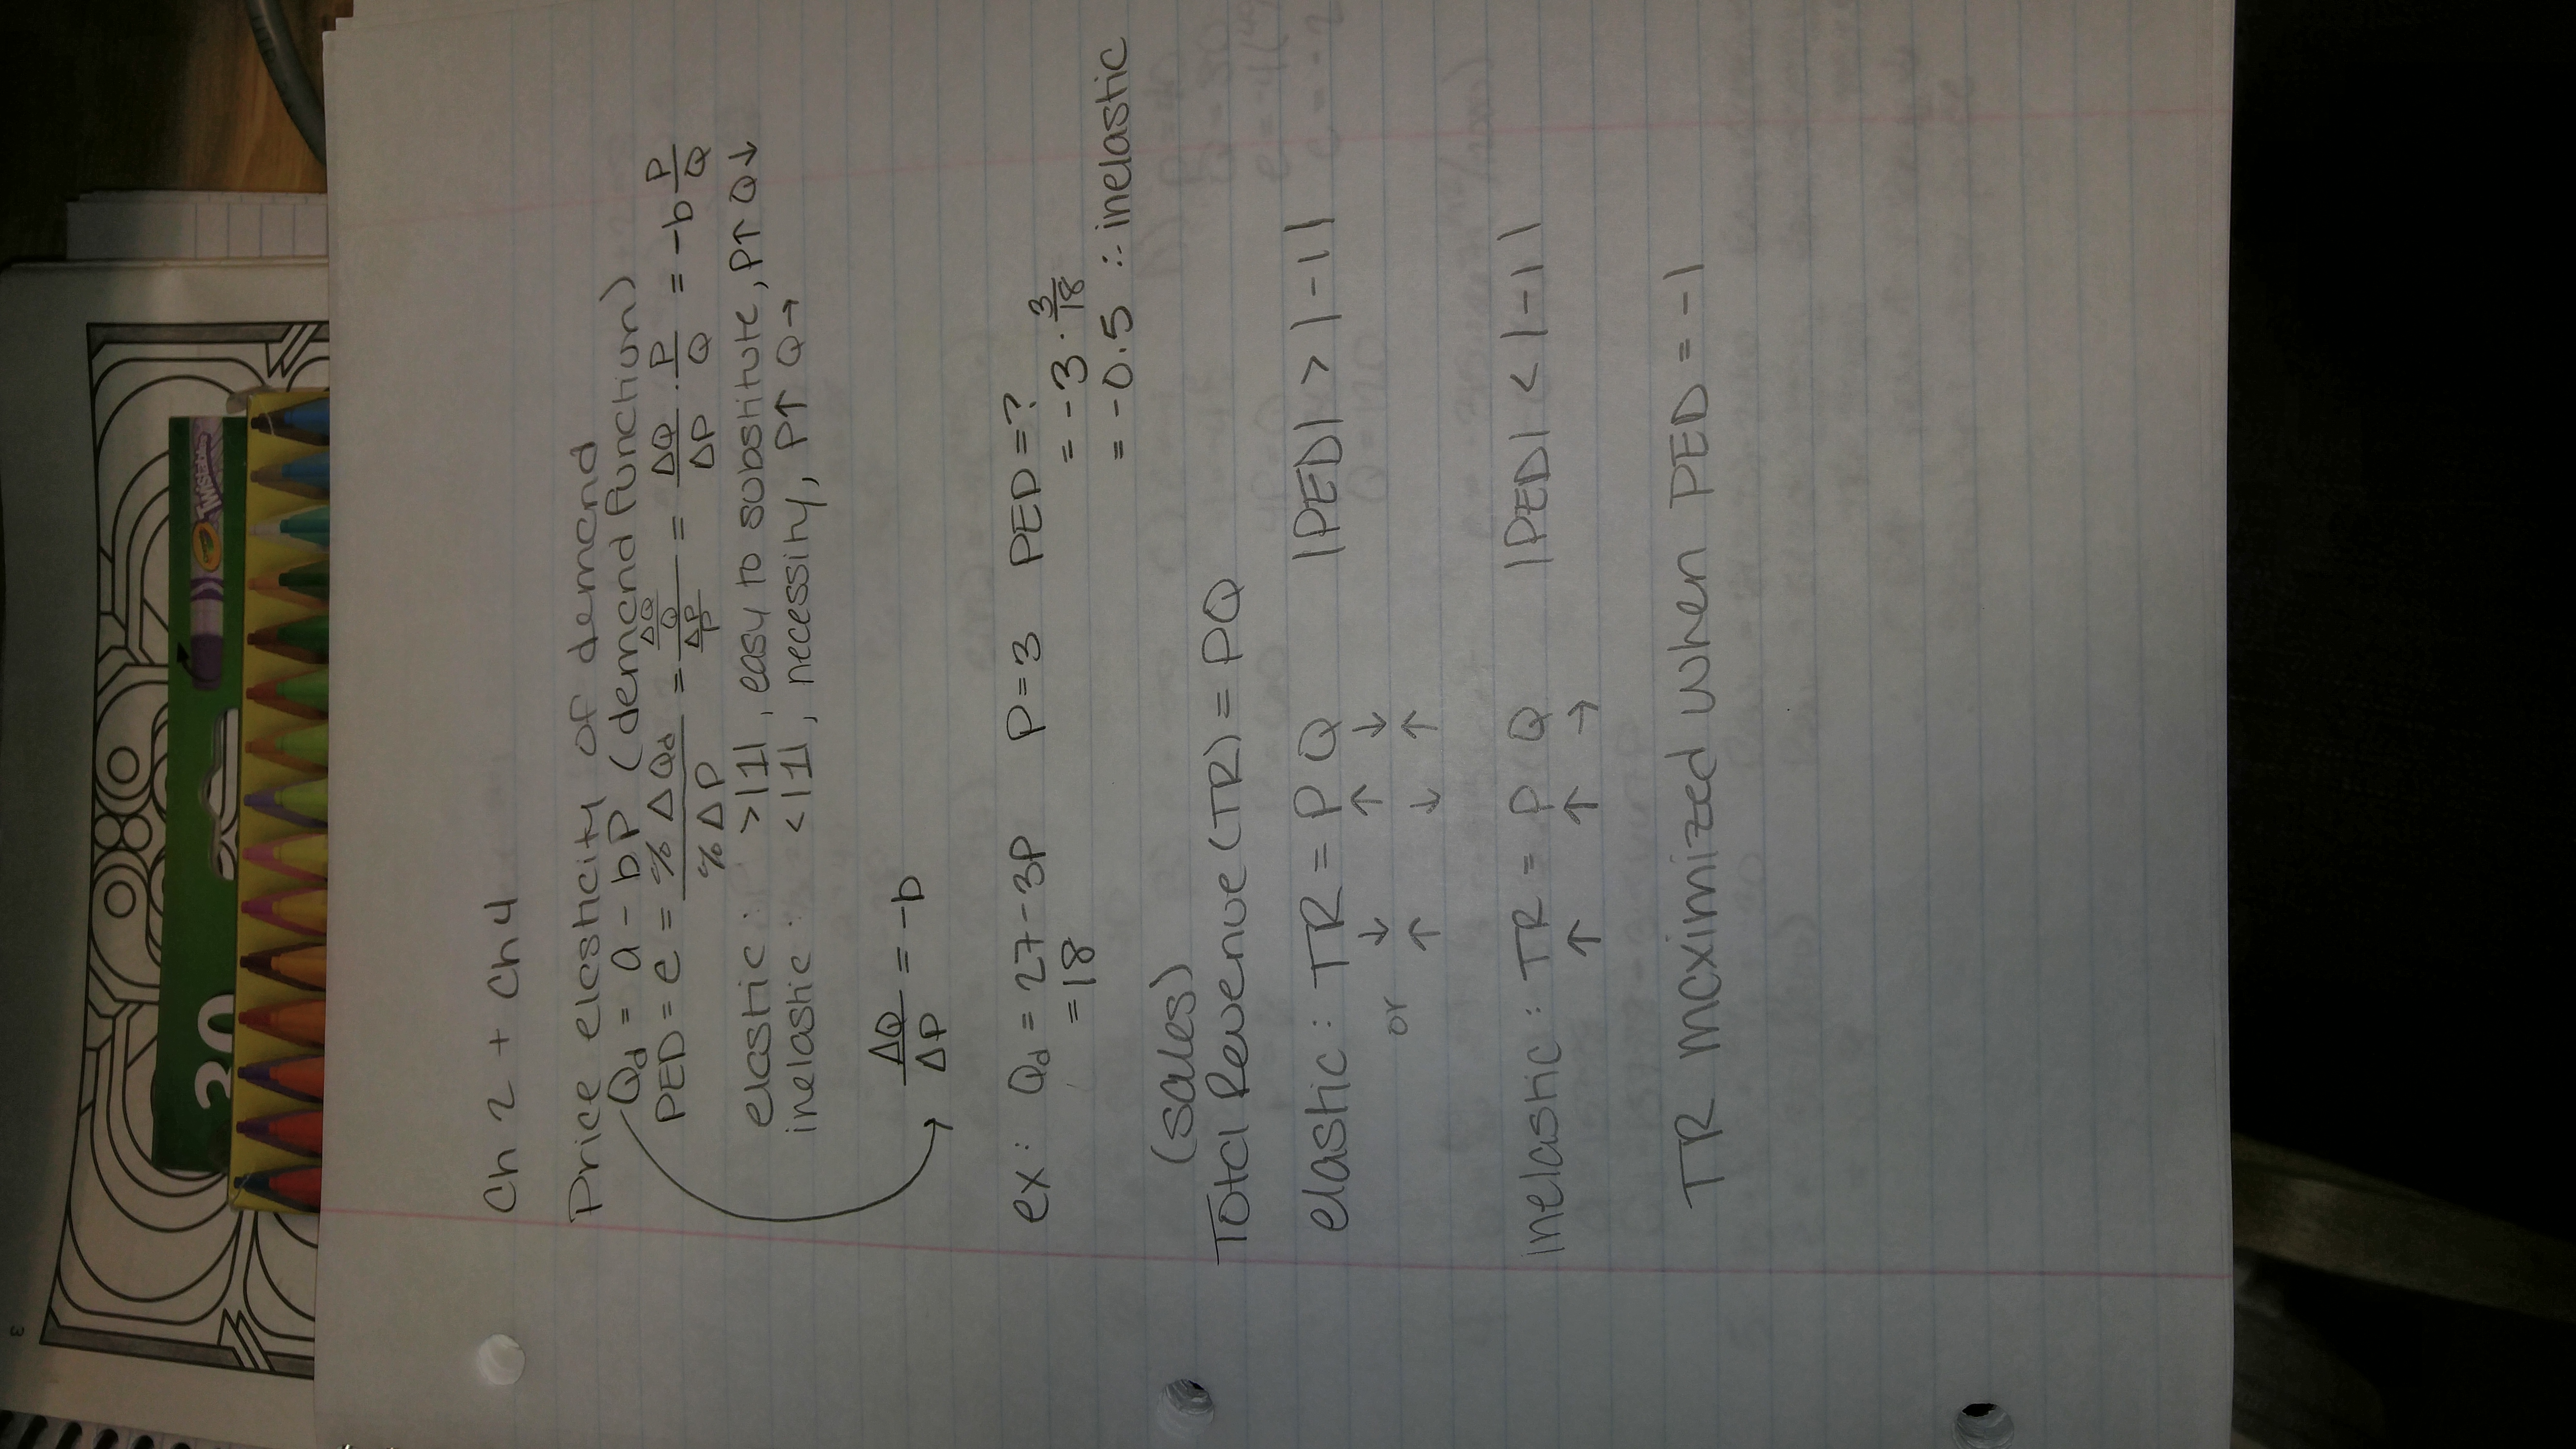 Ch 2 + Ch 4
Price elasticity of demand
Qd = a - bP (demand function)
PED = e = %ΔQd / %ΔP = (ΔQ/Q) / (ΔP/P) = ΔQ/ΔP · P/Q = -b P/Q
elastic : > |1|, easy to substitute, P↑ Q↓
inelastic : < |1|, necessity, P↑ Q→
ΔQ/ΔP = -b
ex: Qd = 27-3P P=3 PED=?
=18 = -3 · 3/18
= -0.5 ∴ inelastic
(sales)
Total Revenue (TR) = PQ
elastic : TR = P Q |PED| > |-1|
↓ ↑ ↓
or ↑ ↓ ↑
inelastic : TR = P Q |PED| < |-1|
↑ ↑ →
TR maximized when PED = -1
30
Crayola
Twistables
3